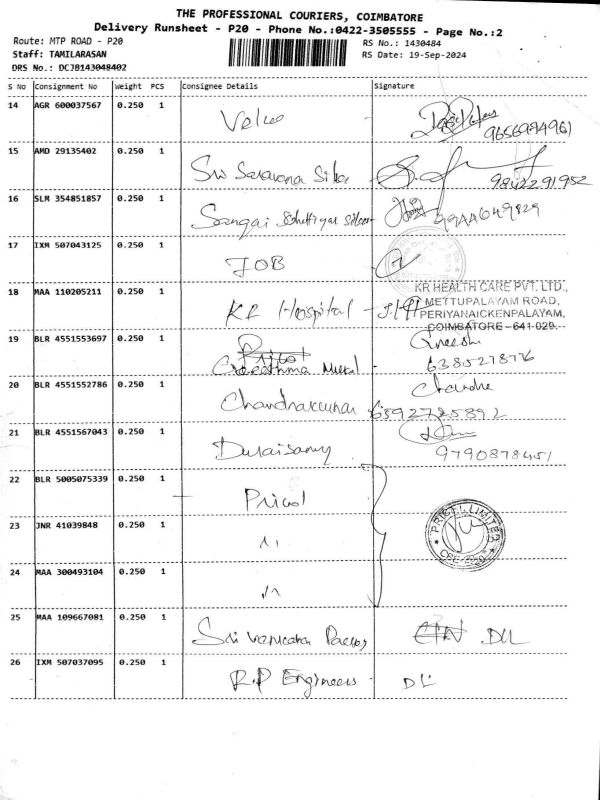 THE PROFESSIONAL COURIERS, COIMBATORE
Delivery Runsheet - P20 - Phone No.:0422-3505555 - Page No.:2
Route: MTP ROAD - P20 RS No.: 1430484
Staff: TAMILARASAN RS Date: 19-Sep-2024
DRS No.: DCJB143048402
S No Consignment No Weight PCS Consignee Details Signature
14 AGR 600037567 0.250 1
9656974961
15 AMD 29135402 0.250 1 Sri Saravana
9842291952
16 SLM 354851857 0.250 1
9944649829
17 IXM 507043125 0.250 1 JOB
18 MAA 110205211 0.250 1 KR Hospital
KR HEALTH CARE PVT. LTD.,
METTUPALAYAM ROAD,
PERIYANAICKENPALAYAM,
COIMBATORE - 641 020.
19 BLR 4551553697 0.250 1
20 BLR 4551552786 0.250 1 Chandrakumar
21 BLR 4551567043 0.250 1 Duraisamy
9790878451
22 BLR 5005075339 0.250 1 Pricol
PRICOL LIMITED
23 JNR 41039848 0.250 1 ,,
24 MAA 300493104 0.250 1 ,,
25 MAA 109667081 0.250 1 Sri DLL
26 IXM 507037095 0.250 1 R.P Engineers DL